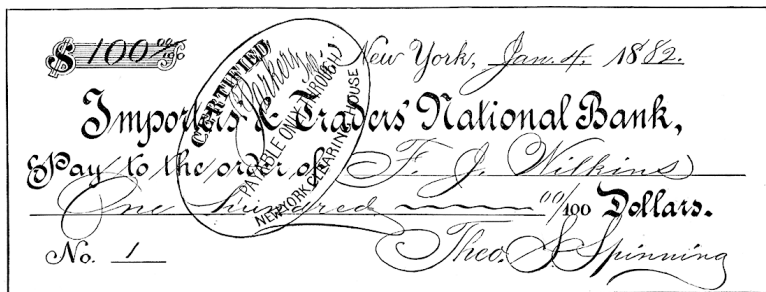 $ 100 00/100
New York, Jan. 4. 1882.
Importers & Traders' National Bank,
Pay to the order of F. J. Wilkins
One hundred 00/100 Dollars.
No. 1 Theo. S. Spinning
CERTIFIED
PAYABLE ONLY THROUGH
NEW YORK CLEARING HOUSE